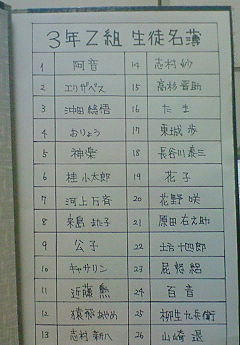 3年Z組 生徒名簿
1 阿音 14 志村 妙
2 エリザベス 15 高杉晋助
3 沖田総悟 16 たま
4 おりょう 17 東城 歩
5 神楽 18 長谷川泰三
6 桂小太郎 19 花子
7 河上万斉 20 花野 咲
8 来島また子 21 原田右之助
9 公子 22 土方十四郎
10 キャサリン 23 屁怒絽
11 近藤 勲 24 百音
12 猿飛あやめ 25 柳生九兵衛
13 志村 新八 26 山崎 退